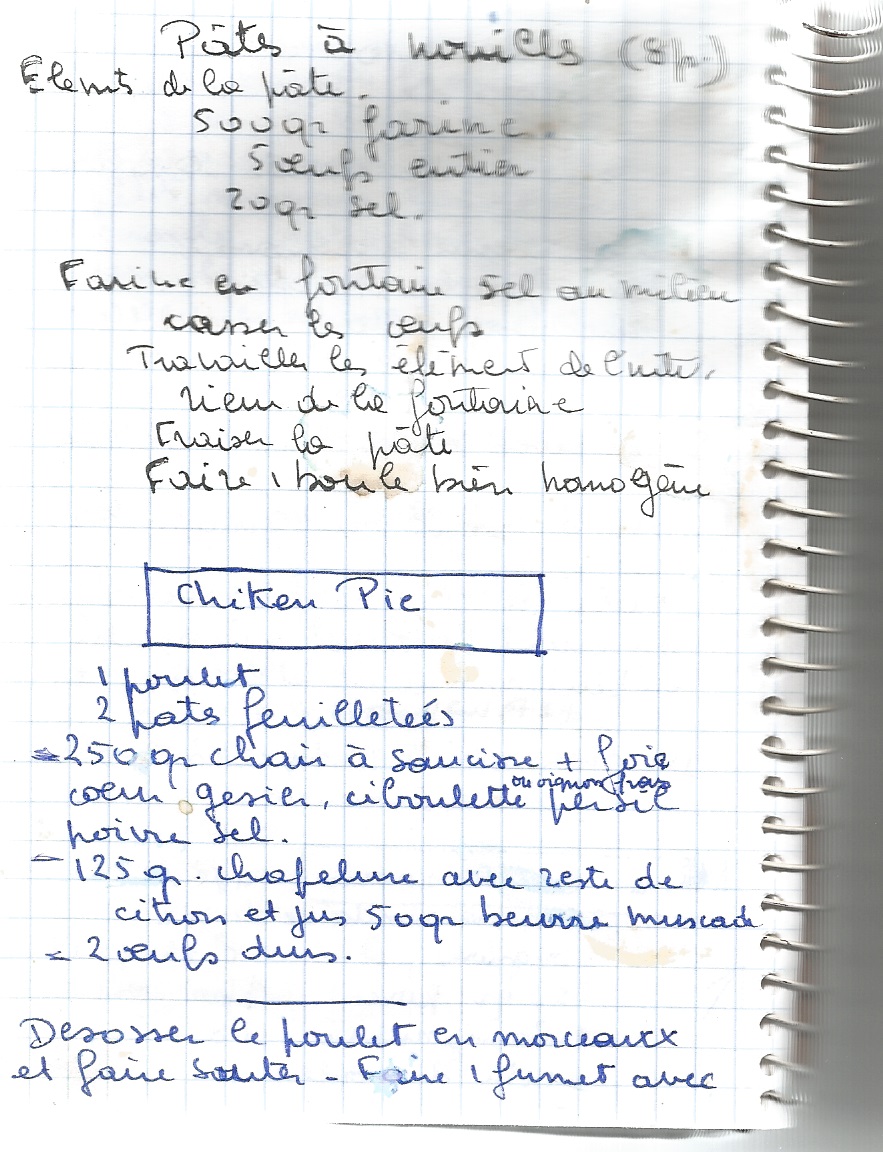 Pâtes à nouilles (8 p.)
Elemts de la pâte.
500gr farine.
5 œufs entier
20gr sel.
Farine en fontaine sel au milieu
casser les œufs
Travailler les élément de l'inté.
rieur de la fontaine
Fraiser la pâte
Faire 1 boule bien homogène
Chiken Pie
1 poulet
2 pats feuilleteés
- 250 gr chair à saucisse + foie
ou oignon frais
coeur gesier, ciboulette persil
poivre sel.
- 125 gr. chapelure avec zeste de
citron et jus 50gr beurre muscade
- 2 œufs durs.
Desosser le poulet en morceaux
et faire sauter - Faire 1 fumet avec